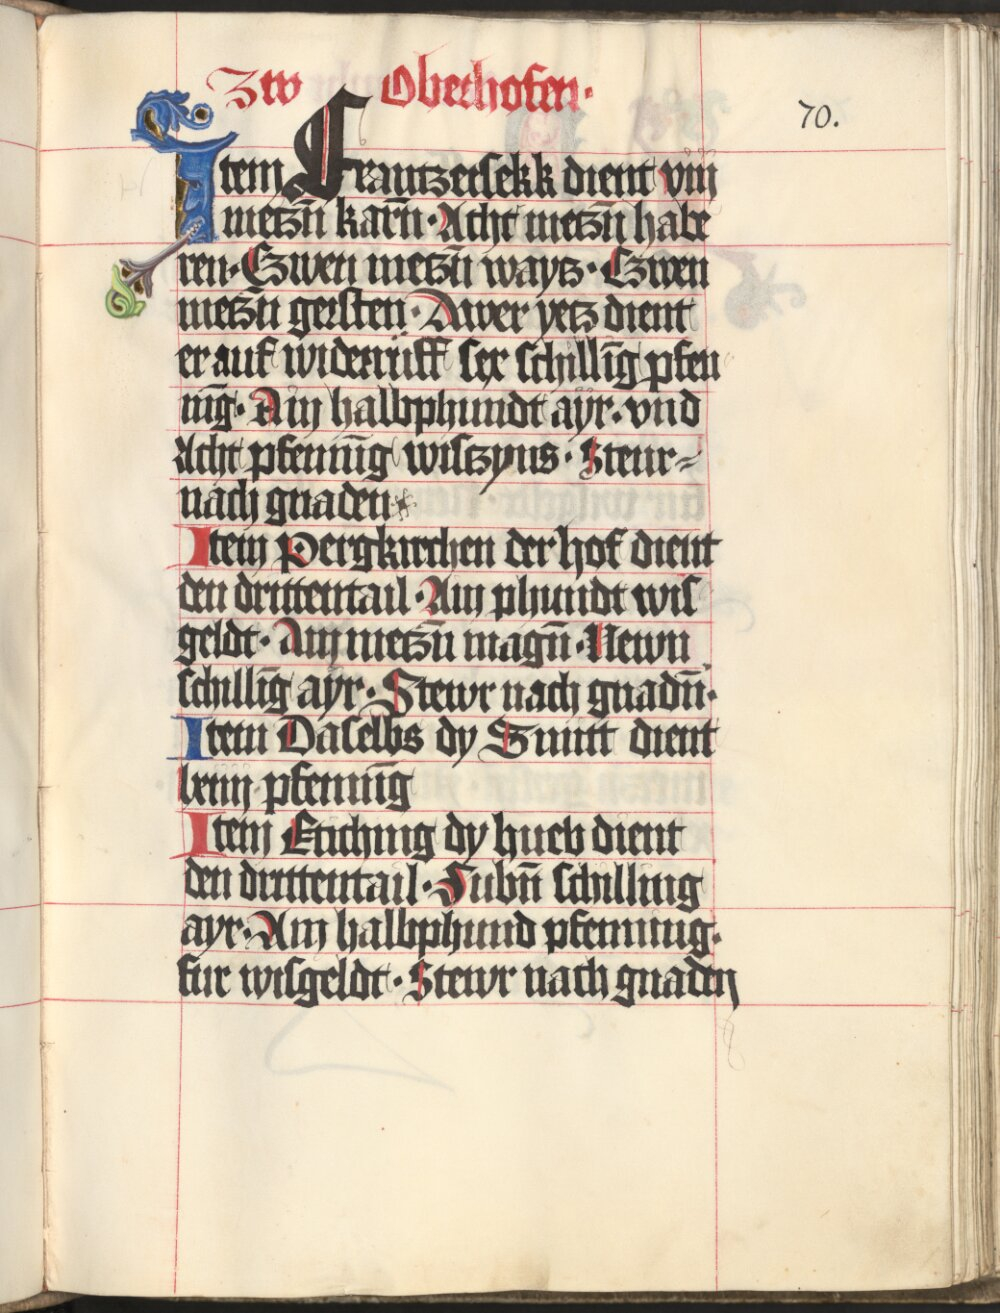 Zw Oberhofen·
70.
Item Frantzersekk dient viij
metzn̄ karn̄· Acht metzn̄ habe
ren· Czwen metzn̄ waytz· Czwen
metzn̄ gersten· Awer yetz dient
er auf widerrúff sex schilliṅg pfen
nīg· Ain halbphundt ayr· vnd
Acht pfennīg wistzyns· Steur
nach gnaden
Item Pergkirchen der hof dient
den drittentail· Ain phundt wis
geldt· Ain metzn̄ magn̄· Newn
schillīg ayr· Stewr nach gnadn̄·
Item Daselbs dy Smitt dient
lxiiij pfennīg
Item Etiching dy hueb dient
den drittentail· Subn̄ schilling
ayr· Ain halbphund pfenning·
fur wisgeldt· Stewr nach gnaden